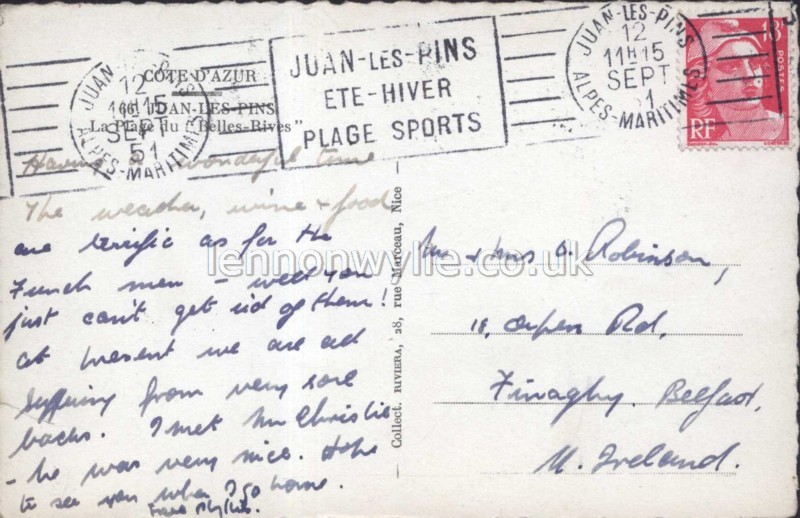 CÔTE D'AZUR
661 JUAN-LES-PINS
La Plage du "Belles-Rives"
JUAN-LES-PINS
12
SEPT
51
ALPES-MARITIMES
JUAN-LES-PINS
ETE-HIVER
PLAGE SPORTS
JUAN-LES-PINS
12
11H15
SEPT
51
ALPES-MARITIMES
18F
POSTES
RF
Having a wonderful time
The weather, wine + food
are terrific as for the
French men - well you
just can't get rid of them!
at present we are all
suffering from very sore
backs. I met Mr Christie
- he was very nice. Hope
to see you when I go home.
Phyllis.
Collect. RIVIERA, 28, rue Marceau, Nice
Mr + Mrs Robinson,
18, Orpen Rd,
Finaghy, Belfast,
N. Ireland.
lennonwylie.co.uk